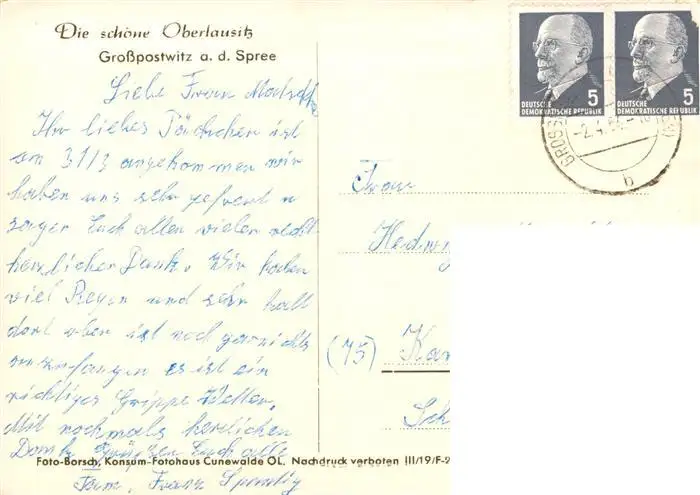 Die schöne Oberlausitz
Großpostwitz a. d. Spree
Liebe Frau
Ihr liebes Päckchen ist
am 31/3 angekommen wir
haben uns sehr gefreut u
sagen Euch allen vielen recht
herzlichen Dank. Wir haben
viel Regen und sehr kalt
dort oben ist noch garnichts
anzufangen es ist ein
richtiges Grippe Wetter.
Mit nochmals herzlichen
Dank Grüßen Euch alle
Fam. Franz
Foto-Borsch, Konsum-Fotohaus Cunewalde OL. Nachdruck verboten III/19/F-2
DEUTSCHE
DEMOKRATISCHE REPUBLIK 5
DEUTSCHE
DEMOKRATISCHE REPUBLIK 5
Frau
Hedwig
(75) Kar
Sch